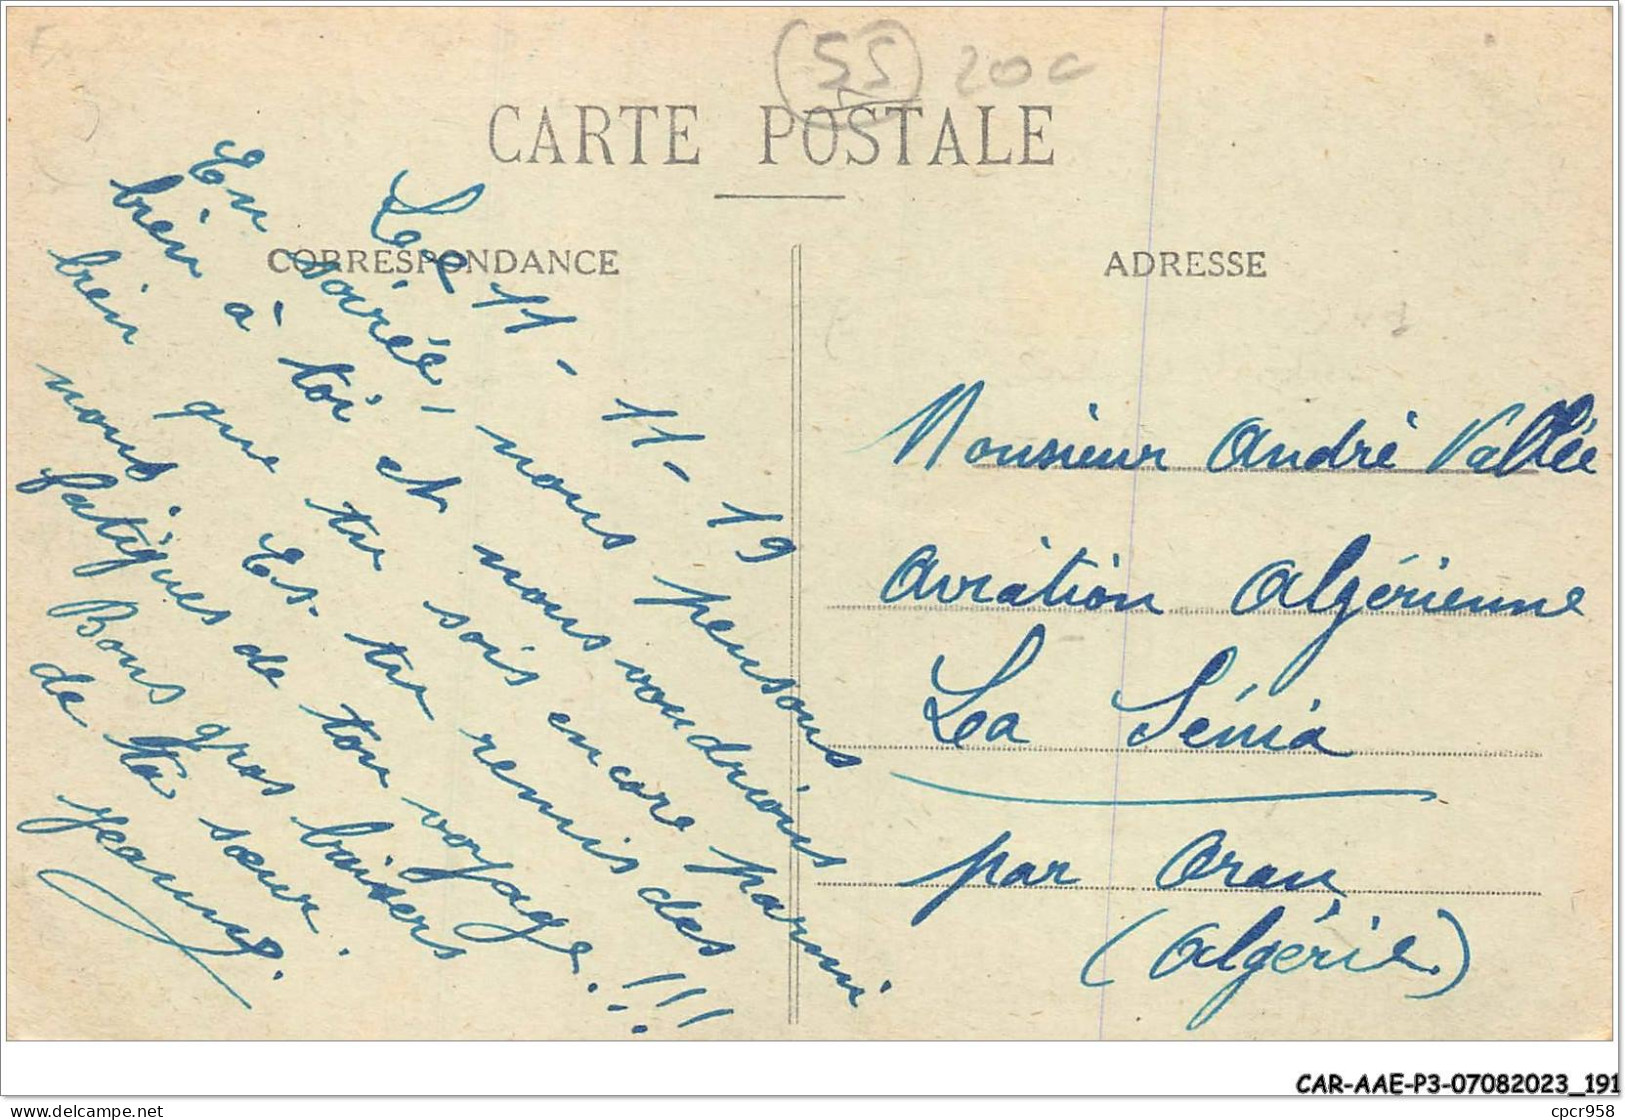 55 200
CARTE POSTALE
CORRESPONDANCE
ADRESSE
Le 11-11-19
En soirée, nous pensons
bien à toi et nous voudrions
bien que tu sois encore parmi
nous. Es-tu remis des
fatigues de ton voyage.!!!
Bons gros baisers
de ta sœur.
Jeanne.
Monsieur André Vallée
Aviation Algérienne
La Sénia
par Oran
(Algérie)
CAR-AAE-P3-07082023_191
delcampe.net
cpcr958